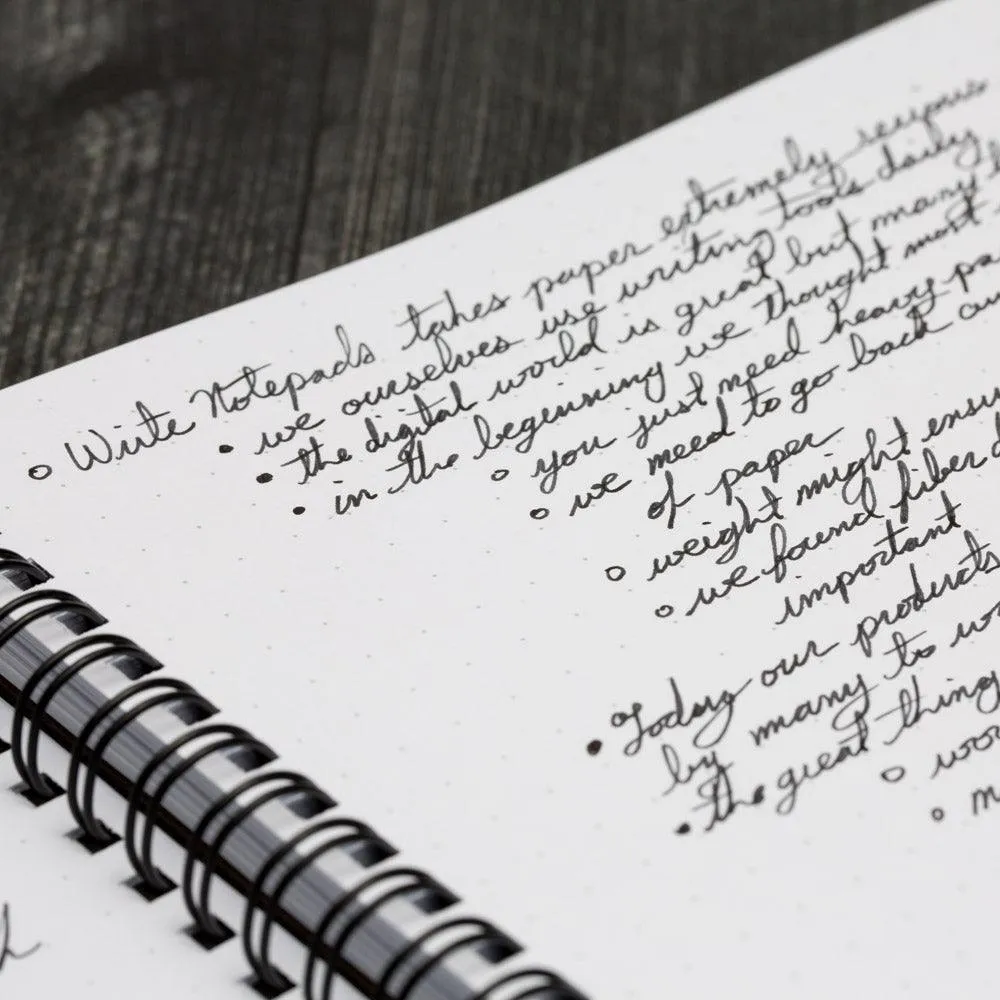 ○ Write Notepads takes paper extremely serious
• we ourselves use writing tools daily
• the digital world is great but many
• in the beginning we thought most
○ you just need heavy pa
○ we need to go back
of paper
○ weight might ensu
○ we found fiber
important
• Today our products
by many to wo
• the great thing
○ wor
○ m